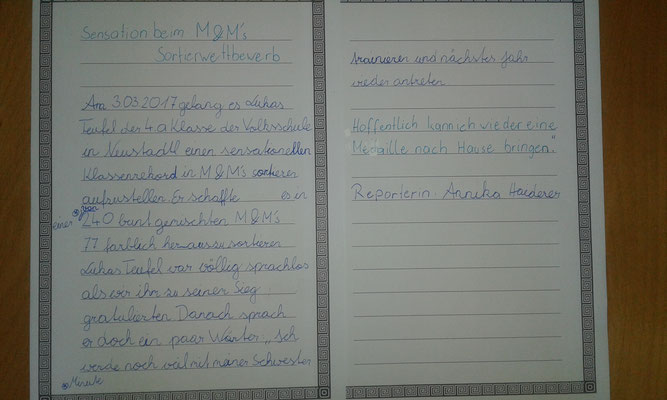 Sensation beim M&M's
Sortierwettbewerb
Am 3.03.2017 gelang es Lukas
Teufel der 4.a Klasse der Volksschule
in Neustadtl einen sensationellen
Klassenrekord in M&M's sortieren
aufzustellen Er schaffte es in
einer ⊗ von
240 bunt gemischten M&M's
77 farblich herauszusortieren
Lukas Teufel war völlig sprachlos
als wir ihr zu seinen Sieg
gratulierten Danach sprach
er doch ein paar Wörter: „Ich
werde noch viel mit meiner Schwester
⊗ Minute
trainieren und nächstes Jahr
wieder antreten
Hoffentlich kann ich wieder eine
Medaille nach Hause bringen."
Reporterin: Annika Haiderer